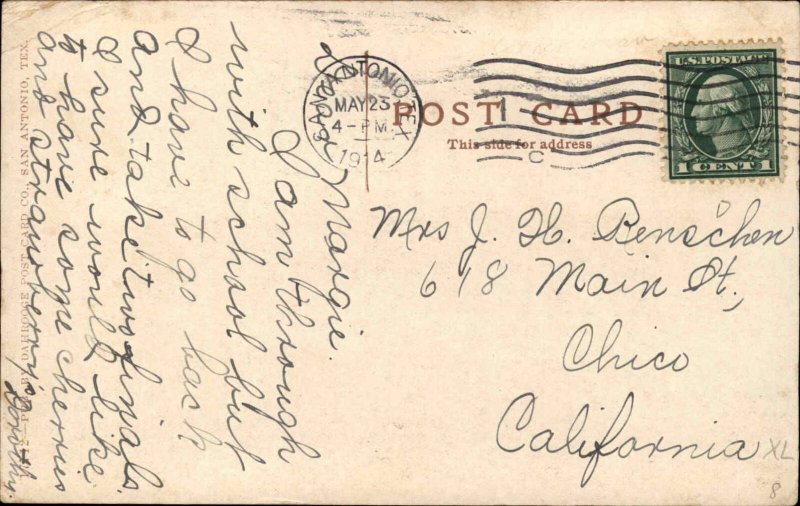 Dear Margie.
I am through
with school but
I have to go back
and take two finals
I sure would like
to have some cherries
and strawberrys
Dorothy.
PUB. BY DAHROOGE POST CARD CO., SAN ANTONIO, TEX.
SAN ANTONIO, TEX.
MAY 23
4-PM
1914
POST CARD
This side for address
U.S. POSTAGE
1 CENT 1
Mrs J. H. Benschen
618 Main St,
Chico
California
XL
8